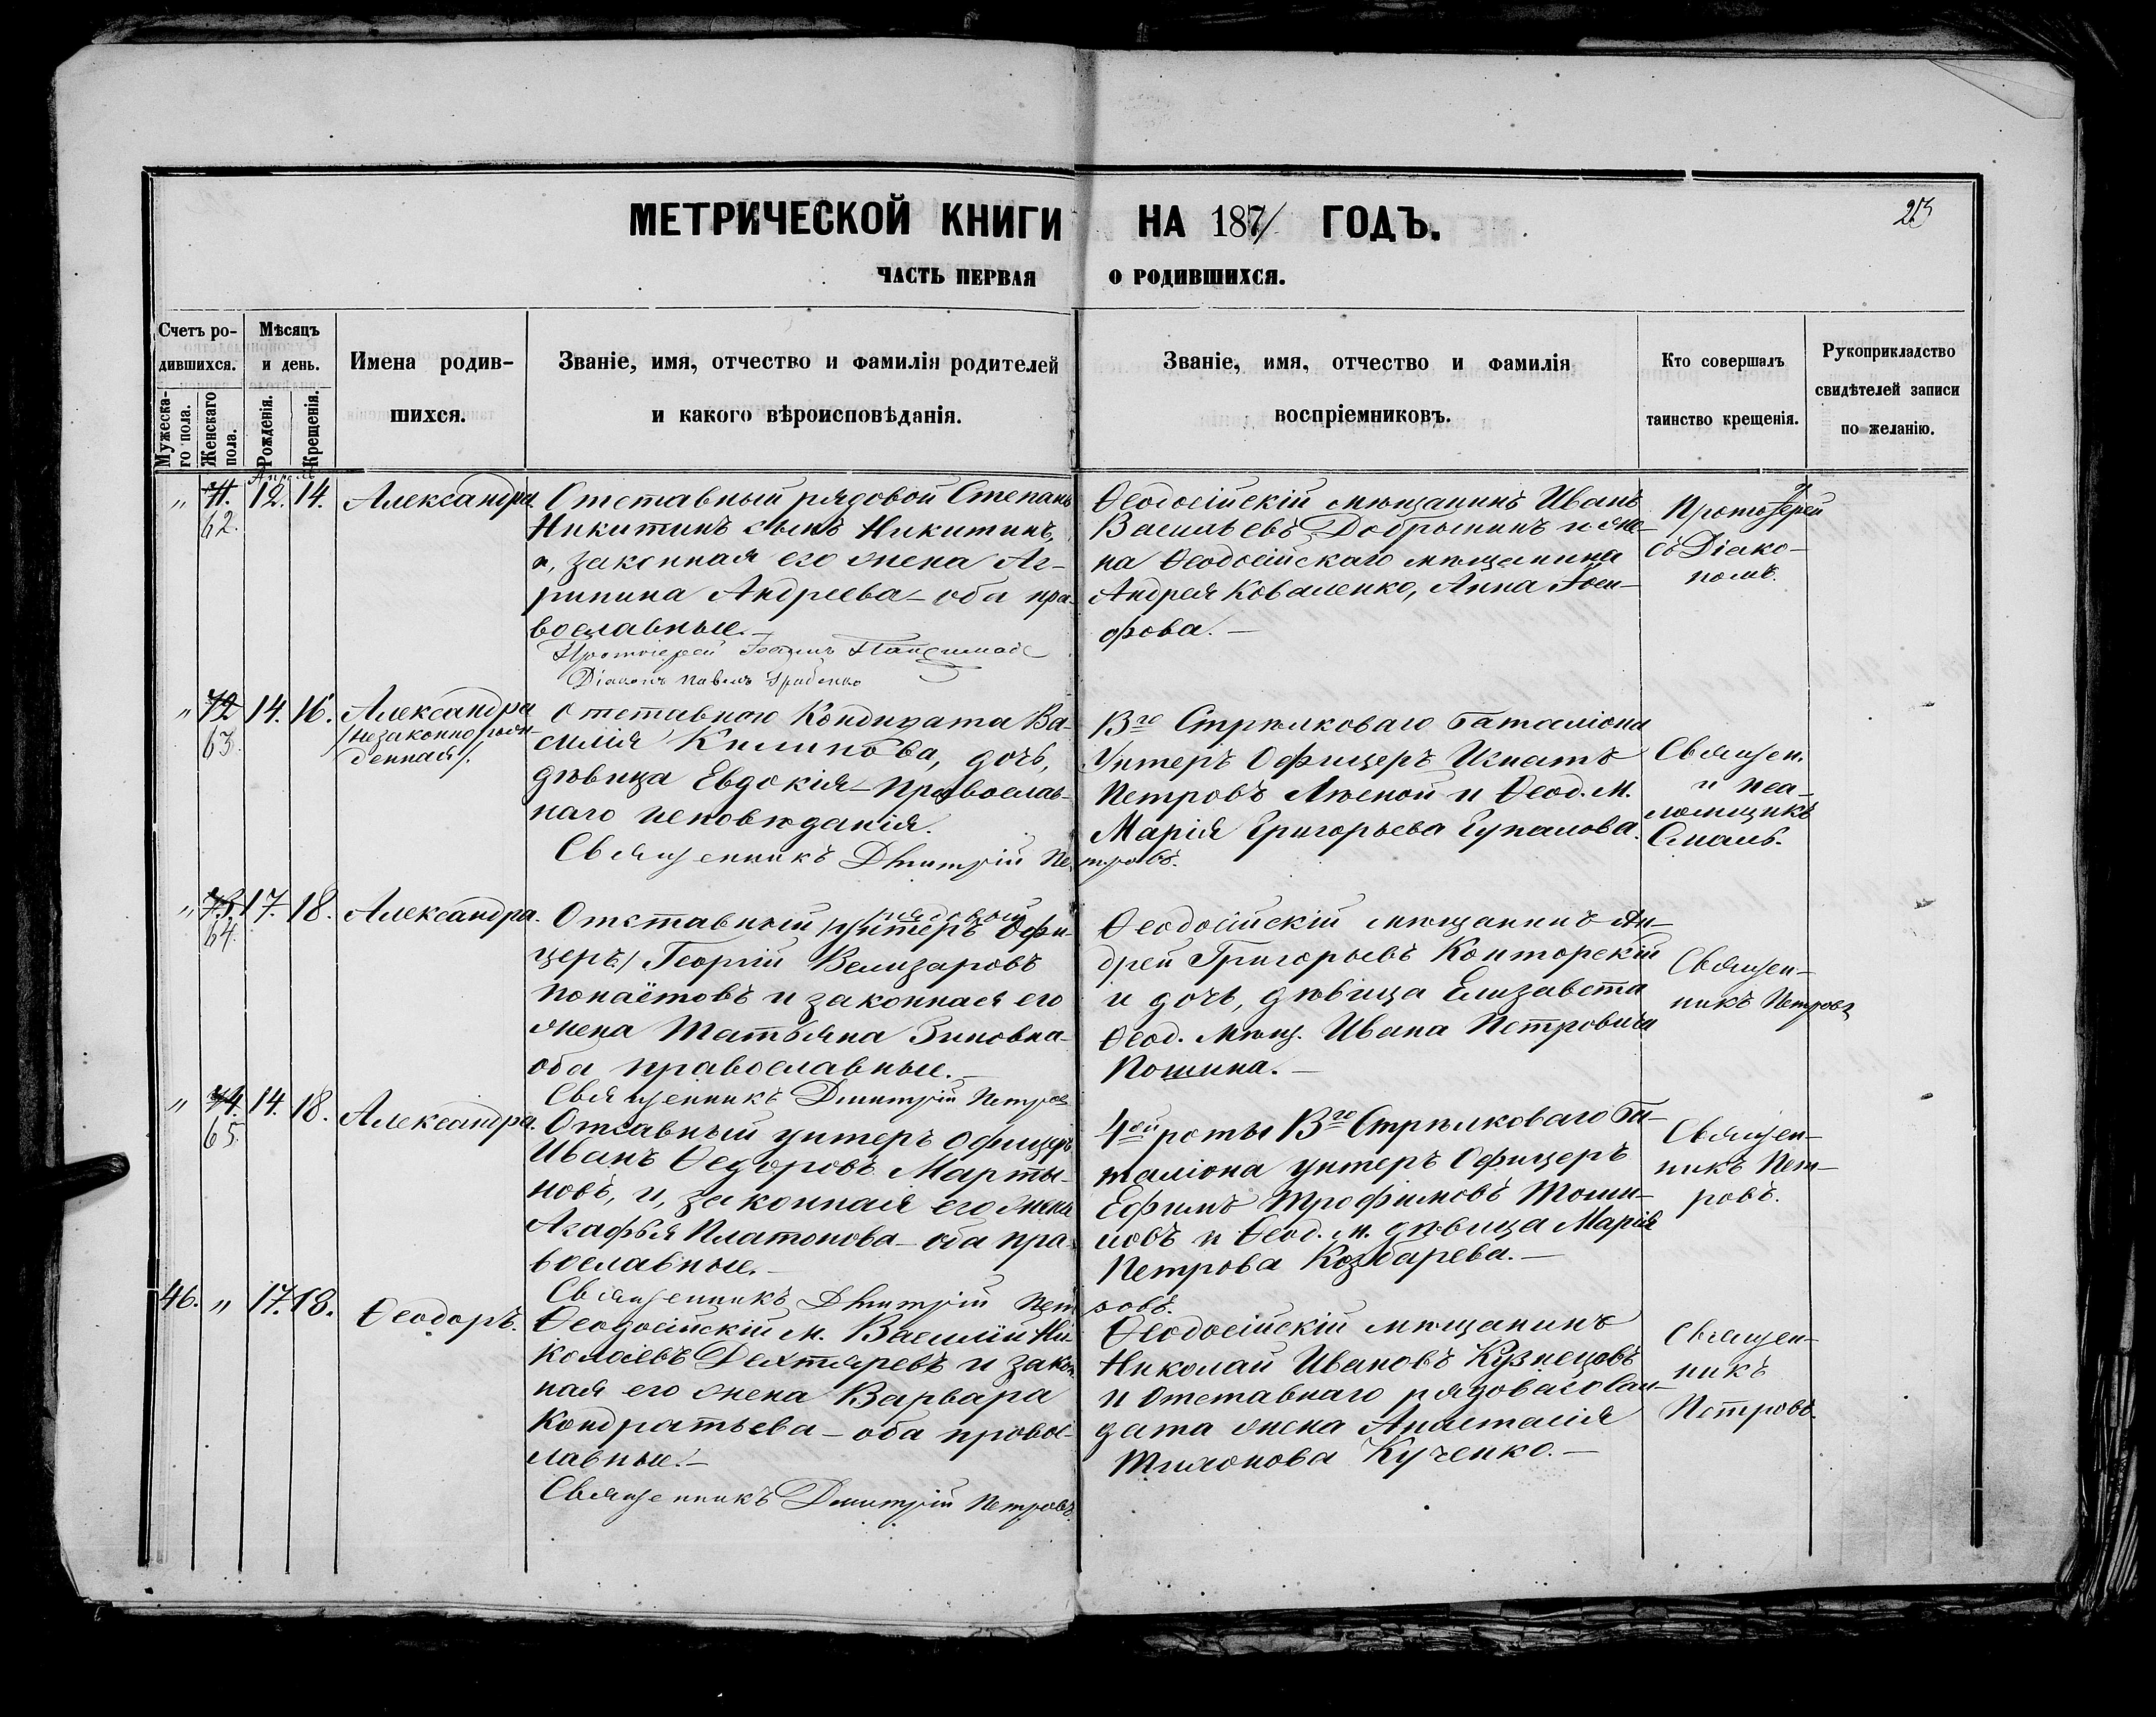 МЕТРИЧЕСКОЙ КНИГИ НА 1871 ГОДЪ.
ЧАСТЬ ПЕРВАЯ О РОДИВШИХСЯ.
Счетъ ро-
дившихся.
Мужеска-
го пола.
Женскаго
пола.
Мѣсяцъ
и день.
Рожденія.
Крещенія.
Имена родив-
шихся.
Званіе, имя, отчество и фамилія родителей
и какого вѣроисповѣданія.
Званіе, имя, отчество и фамилія
воспріемниковъ.
Кто совершалъ
таинство крещенія.
Рукоприкладство
свидѣтелей записи
по желанію.
Апрель
" 71. 12. 14. Александра.
62.
Отставный рядовой Степанъ
Никитинъ сынъ Никитинъ,
и, законная его жена Аг-
рипина Андреева - оба пра-
вославные. -
Протоіерей
Діаконъ Павелъ
Ѳеодосійскій мѣщанинъ Иванъ
Васильевъ Добрынинъ и же-
на Ѳеодосійскаго мѣщанина
Андрея Коваленко, Анна Іоси-
фова. -
Протоіерей
съ Діако-
помъ.
" 72 14. 16. Александра
63.
/незаконнорож-
денная/.
Отставного Кондрата Ва-
силія Килипова, дочь,
дѣвица Евдокія - Православ-
наго исповѣданія.
Священникъ Дмитрій Петровъ.
13го Стрѣлковаго Баталіона
Унтеръ Офицеръ Игнатъ
Петровъ Лясной и Ѳеод. М.
Марія Григорьева Гупалова.
Священ.
и Пса-
ломщикъ
" 73. 17. 18. Александра.
64.
Отставный рядовой /унтеръ Офи-
церъ/ Георгій Велизаровъ
Попаётовъ и законная его
жена Татьяна Зиновна -
оба православные. -
Священникъ Дмитрій Петровъ
Ѳеодосійскій мѣщанинъ Ан-
дрей Григорьевъ Конторскій
и дочь, дѣвица Елизавета
Ѳеод. Мѣщ. Ивана Петровича
Пошина. -
Священ-
никъ Петровъ
" 74. 14. 18. Александра.
65.
Отсавный унтеръ офицеръ
Иванъ Ѳедоровъ Марты-
новъ, и, законная его жена
Агафья Платонова - оба пра-
вославные. -
Священникъ Дмитрій Петровъ.
4ой роты 13го Стрѣлковаго Ба-
таліона унтеръ Офицеръ
Ефимъ Трофимовъ Томи-
ловъ и Ѳеод. м. дѣвица Марія
Петрова Козбарева. -
Священ-
никъ Пет-
ровъ.
46. " 17. 18. Ѳеодоръ.
Ѳеодосійскій м. Василій Ни-
колаевъ Дехтяревъ и закон-
ная его жена Варвара
Кондратьева - оба правос-
лавные. -
Священникъ Дмитрій Петровъ.
Ѳеодосійскій мѣщанинъ
Николай Ивановъ Кузнецовъ
и Отставнаго рядоваго Сол-
дата жена Анастасія
Тихонова Кученко. -
Священ-
никъ
Петровъ.